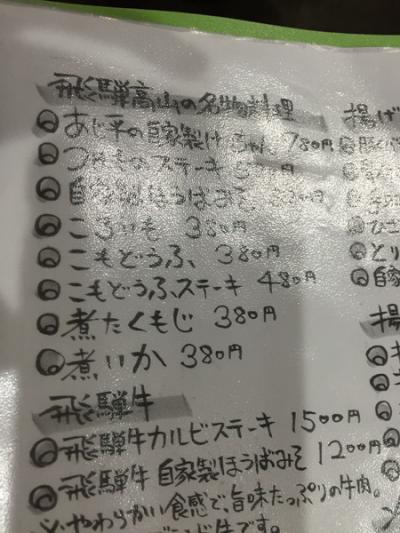 飛騨高山の名物料理
◎あじ平の自家製けいちゃん 780円
◎つけものステーキ
◎自家製ほうばみそ
◎ころいも 380円
◎こもどうふ 380円
◎こもどうふステーキ 480円
◎煮たくもじ 380円
◎煮いか 380円
飛騨牛
◎飛騨牛カルビステーキ 1500円
◎飛騨牛 自家製ほうばみそ 1200円
※やわらかい食感で、旨味たっぷりの牛肉。
ド牛です。
揚げ
◎
◎
◎
◎ひざ
◎とり
◎自家
揚